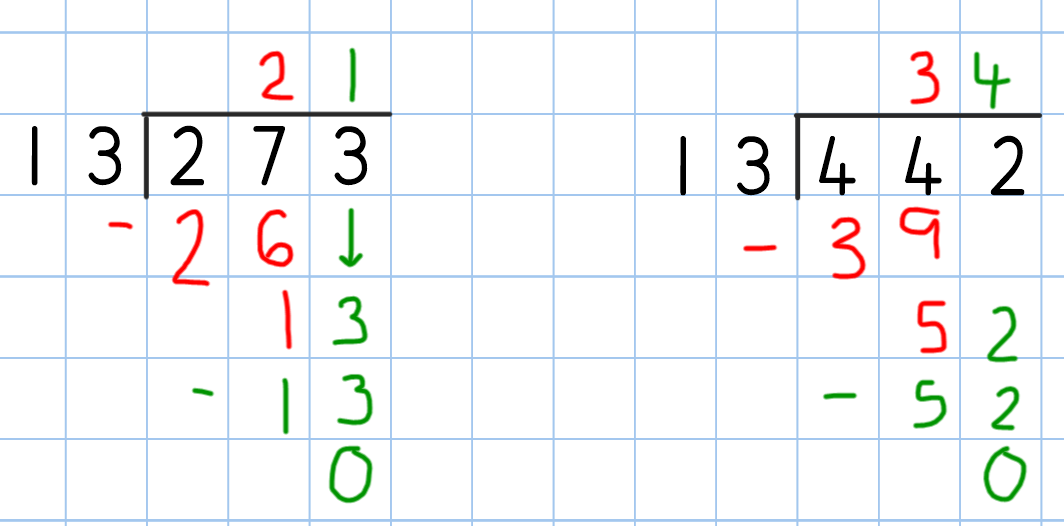 2 1
1 3 2 7 3
- 2 6 ↓
1 3
- 1 3
0
3 4
1 3 4 4 2
- 3 9
5 2
- 5 2
0